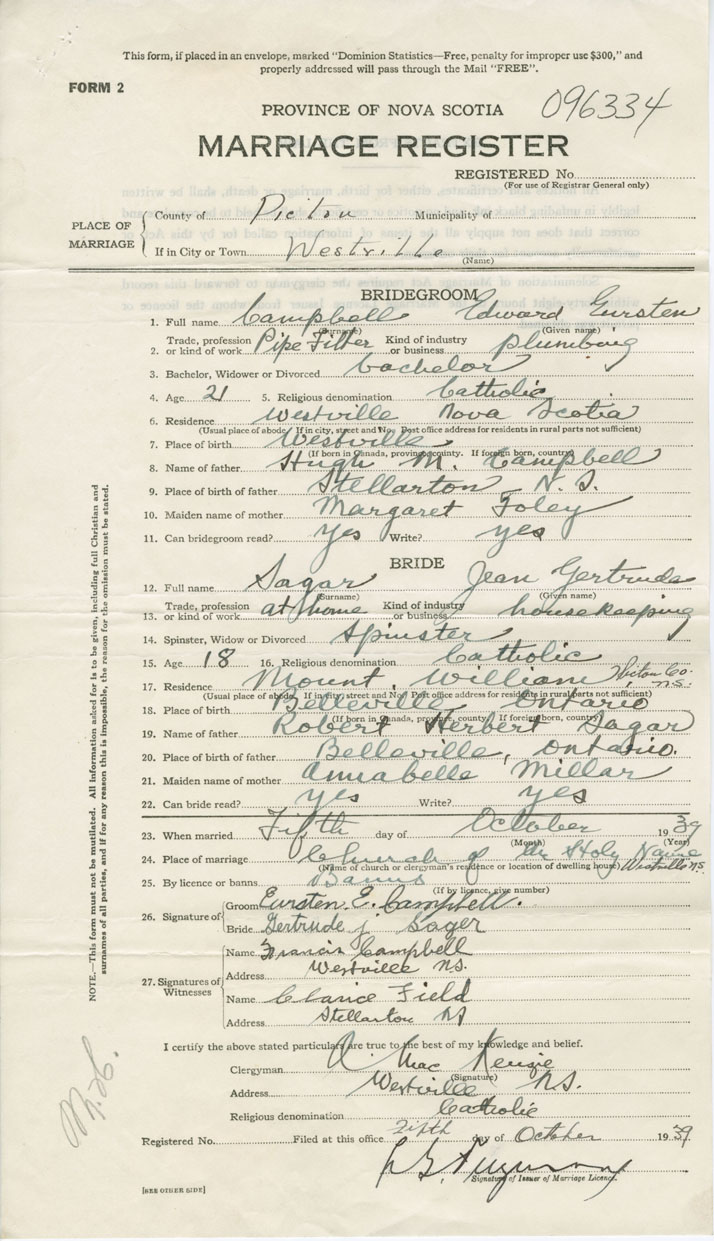 This form, if placed in an envelope, marked "Dominion Statistics—Free, penalty for improper use $300," and
properly addressed will pass through the Mail "FREE".
FORM 2
096334
PROVINCE OF NOVA SCOTIA
MARRIAGE REGISTER
REGISTERED No.
(For use of Registrar General only)
PLACE OF MARRIAGE
County of Pictou Municipality of
If in City or Town Westville
(Name)
BRIDEGROOM
1. Full name Campbell Edward Eursten
(Surname) (Given name)
2. Trade, profession or kind of work Pipe Fitter Kind of industry or business plumbing
3. Bachelor, Widower or Divorced bachelor
4. Age 21 5. Religious denomination Catholic
6. Residence Westville Nova Scotia
(Usual place of abode. If in city, street and No. Post office address for residents in rural parts not sufficient)
7. Place of birth Westville
(If born in Canada, province, county. If foreign born, country)
8. Name of father Hugh M. Campbell
9. Place of birth of father Stellarton N. S.
10. Maiden name of mother Margaret Foley
11. Can bridegroom read? yes Write? yes
BRIDE
12. Full name Sagar Jean Gertrude
(Surname) (Given name)
13. Trade, profession or kind of work at home Kind of industry or business housekeeping
14. Spinster, Widow or Divorced Spinster
15. Age 18 16. Religious denomination Catholic
17. Residence Mount William Pictou Co. N.S.
(Usual place of abode. If in city, street and No. Post office address for residents in rural parts not sufficient)
18. Place of birth Belleville Ontario
(If born in Canada, province, county. If foreign born, country)
19. Name of father Robert Herbert Sagar
20. Place of birth of father Belleville, Ontario.
21. Maiden name of mother Annabelle Millar
22. Can bride read? yes Write? yes
23. When married Fifth day of October 1939
(Month) (Year)
24. Place of marriage Church of the Holy Name Westville N.S.
(Name of church or clergyman's residence or location of dwelling house)
25. By licence or banns Banns
(If by licence, give number)
26. Signature of
Groom Eursten. E. Campbell.
Bride Gertrude j Sager
27. Signatures of Witnesses
Name Francis Campbell
Address Westville NS.
Name Clarice Field
Address Stellarton NS
I certify the above stated particulars are true to the best of my knowledge and belief.
Clergyman A. MacKenzie
(Signature)
Address Westville NS.
Religious denomination Catholic
Registered No. Filed at this office fifth day of October 1939
Signature of Issuer of Marriage Licence.
[SEE OTHER SIDE]
NOTE.—This form must not be mutilated. All information asked for is to be given, including full Christian and
surnames of all parties, and if for any reason this is impossible, the reason for the omission must be stated.